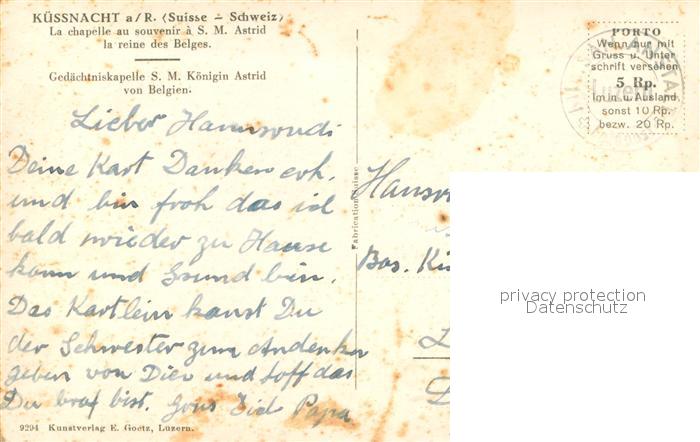 KÜSSNACHT a/R. (Suisse – Schweiz)
La chapelle au souvenir à S. M. Astrid
la reine des Belges.
Gedächtniskapelle S. M. Königin Astrid
von Belgien.
PORTO
Wenn nur mit
Gruss u. Unter
schrift versehen
5 Rp.
Im in u. Ausland
sonst 10 Rp.
bezw. 20 Rp.
Luzern
Lieber Hannsrudi
Deine Kart Danken erh.
und bin froh das ich
bald wieder zu Hause
kann und Gsund bin.
Das Kartlein kanst Du
der Schwester zum Andenken
geben von Dier und hoff das
Du braf bist. Papa
Fabrication Suisse
privacy protection
Datenschutz
9294 Kunstverlag E. Goetz, Luzern.